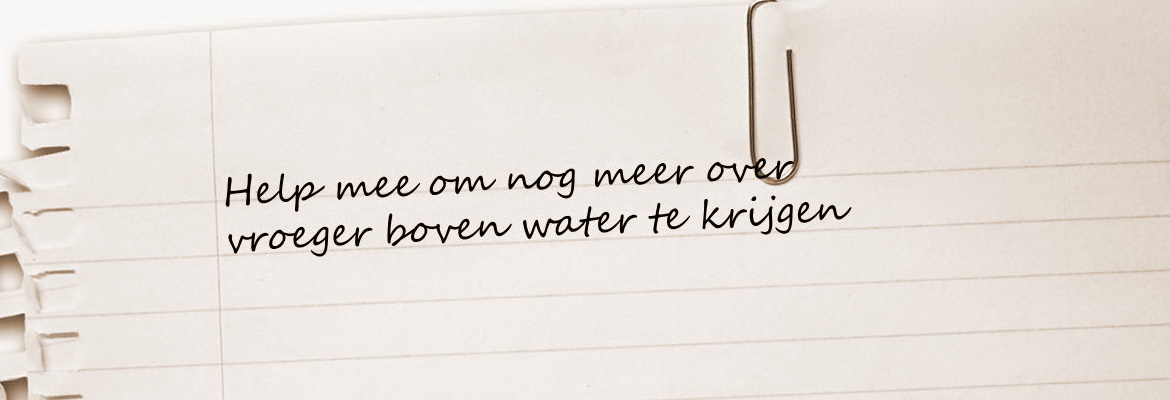 Help mee om nog meer over
vroeger boven water te krijgen